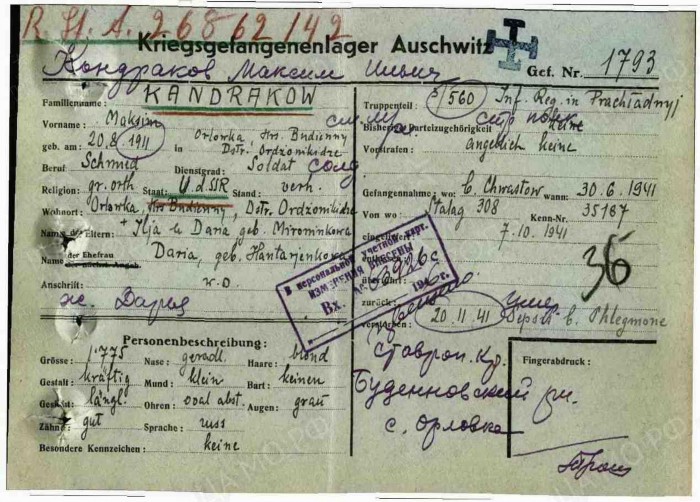 R.H.A. 26862/42
Kriegsgefangenenlager Auschwitz
Gef. Nr. 1793
Кондраков Максим Ильич
Familienname: KANDRAKOW
Vorname: Maksim
geb. am: 20.8.1911 in Orlowka Krs. Budienny
Dstr. Ordzonikidze
Beruf Schmied Dienstgrad: Soldat солд
Religion: gr. orth. Staat: U.d.SSR Stand: verh.
Wohnort: Orlowka, Krs Budienny, Dstr. Ordzonikidze
Name der Eltern: + Ilja u Daria geb. Mirominkowa
Name der Ehefrau
der nächst. Angeh. Daria, geb. Hantarjenkowa
Anschrift: w.o.
ж. Дарья
Personenbeschreibung:
Grösse: 1.775 Nase: geradl. Haare: blond
Gestalt: kräftig Mund: klein Bart: keinen
Gesicht: längl. Ohren: oval abst. Augen: grau
Zähne: gut Sprache: russ
Besondere Kennzeichen: keine
Truppenteil: 560 Inf. Reg. in Prachładnyj
стр. полк
Bisherige Parteizugehörigkeit keine
Vorstrafen: angeblich keine
Gefangennahme: wo: b. Chwastow wann: 30.6.1941
Von wo: Stalag 308 Kenn-Nr. 35187
eingeliefert: 7.10.1941
entlassen:
überführt:
zurück:
36
В персональной учетной карт.
ИЗМЕРЕНИЯ ВНЕСЕНЫ
Вх. 194 г.
умер
verstorben: 20.11.41 Sepsis b. Phlegmone
Ставроп. кр.
Буденновский рн.
с. Орловка
Fingerabdruck: